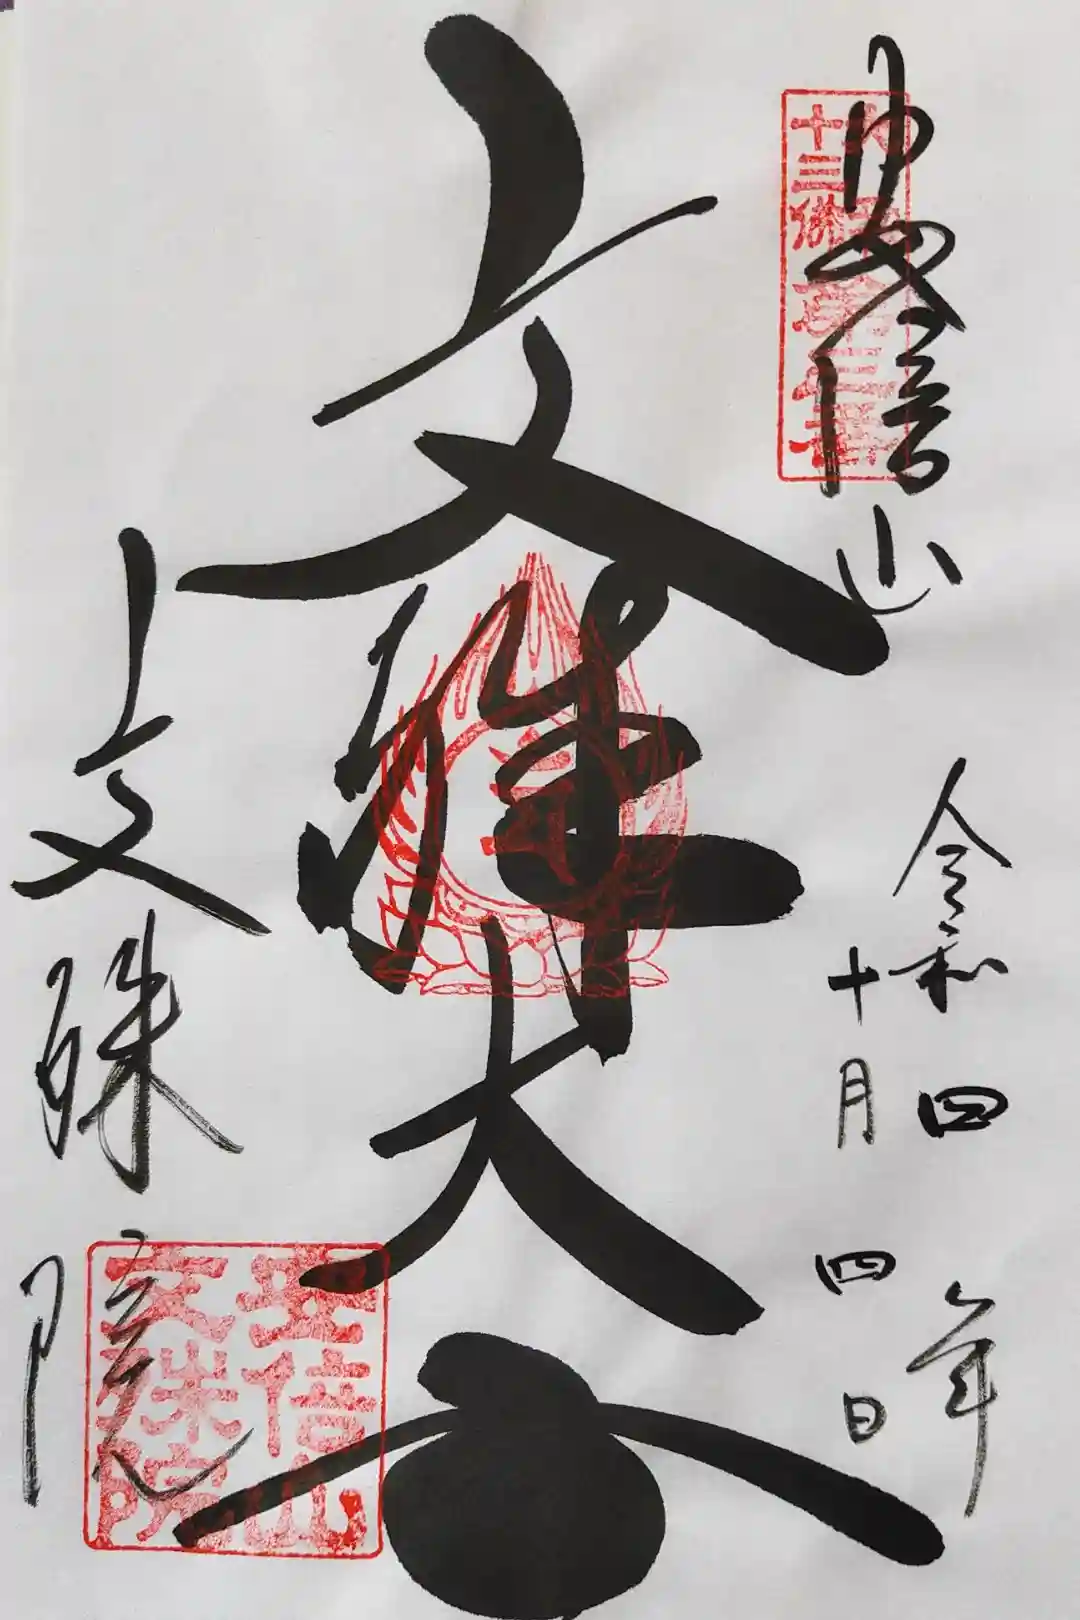 安倍山
十三佛
令和四年
十月四日
文殊大
文殊院
安倍山
文殊院